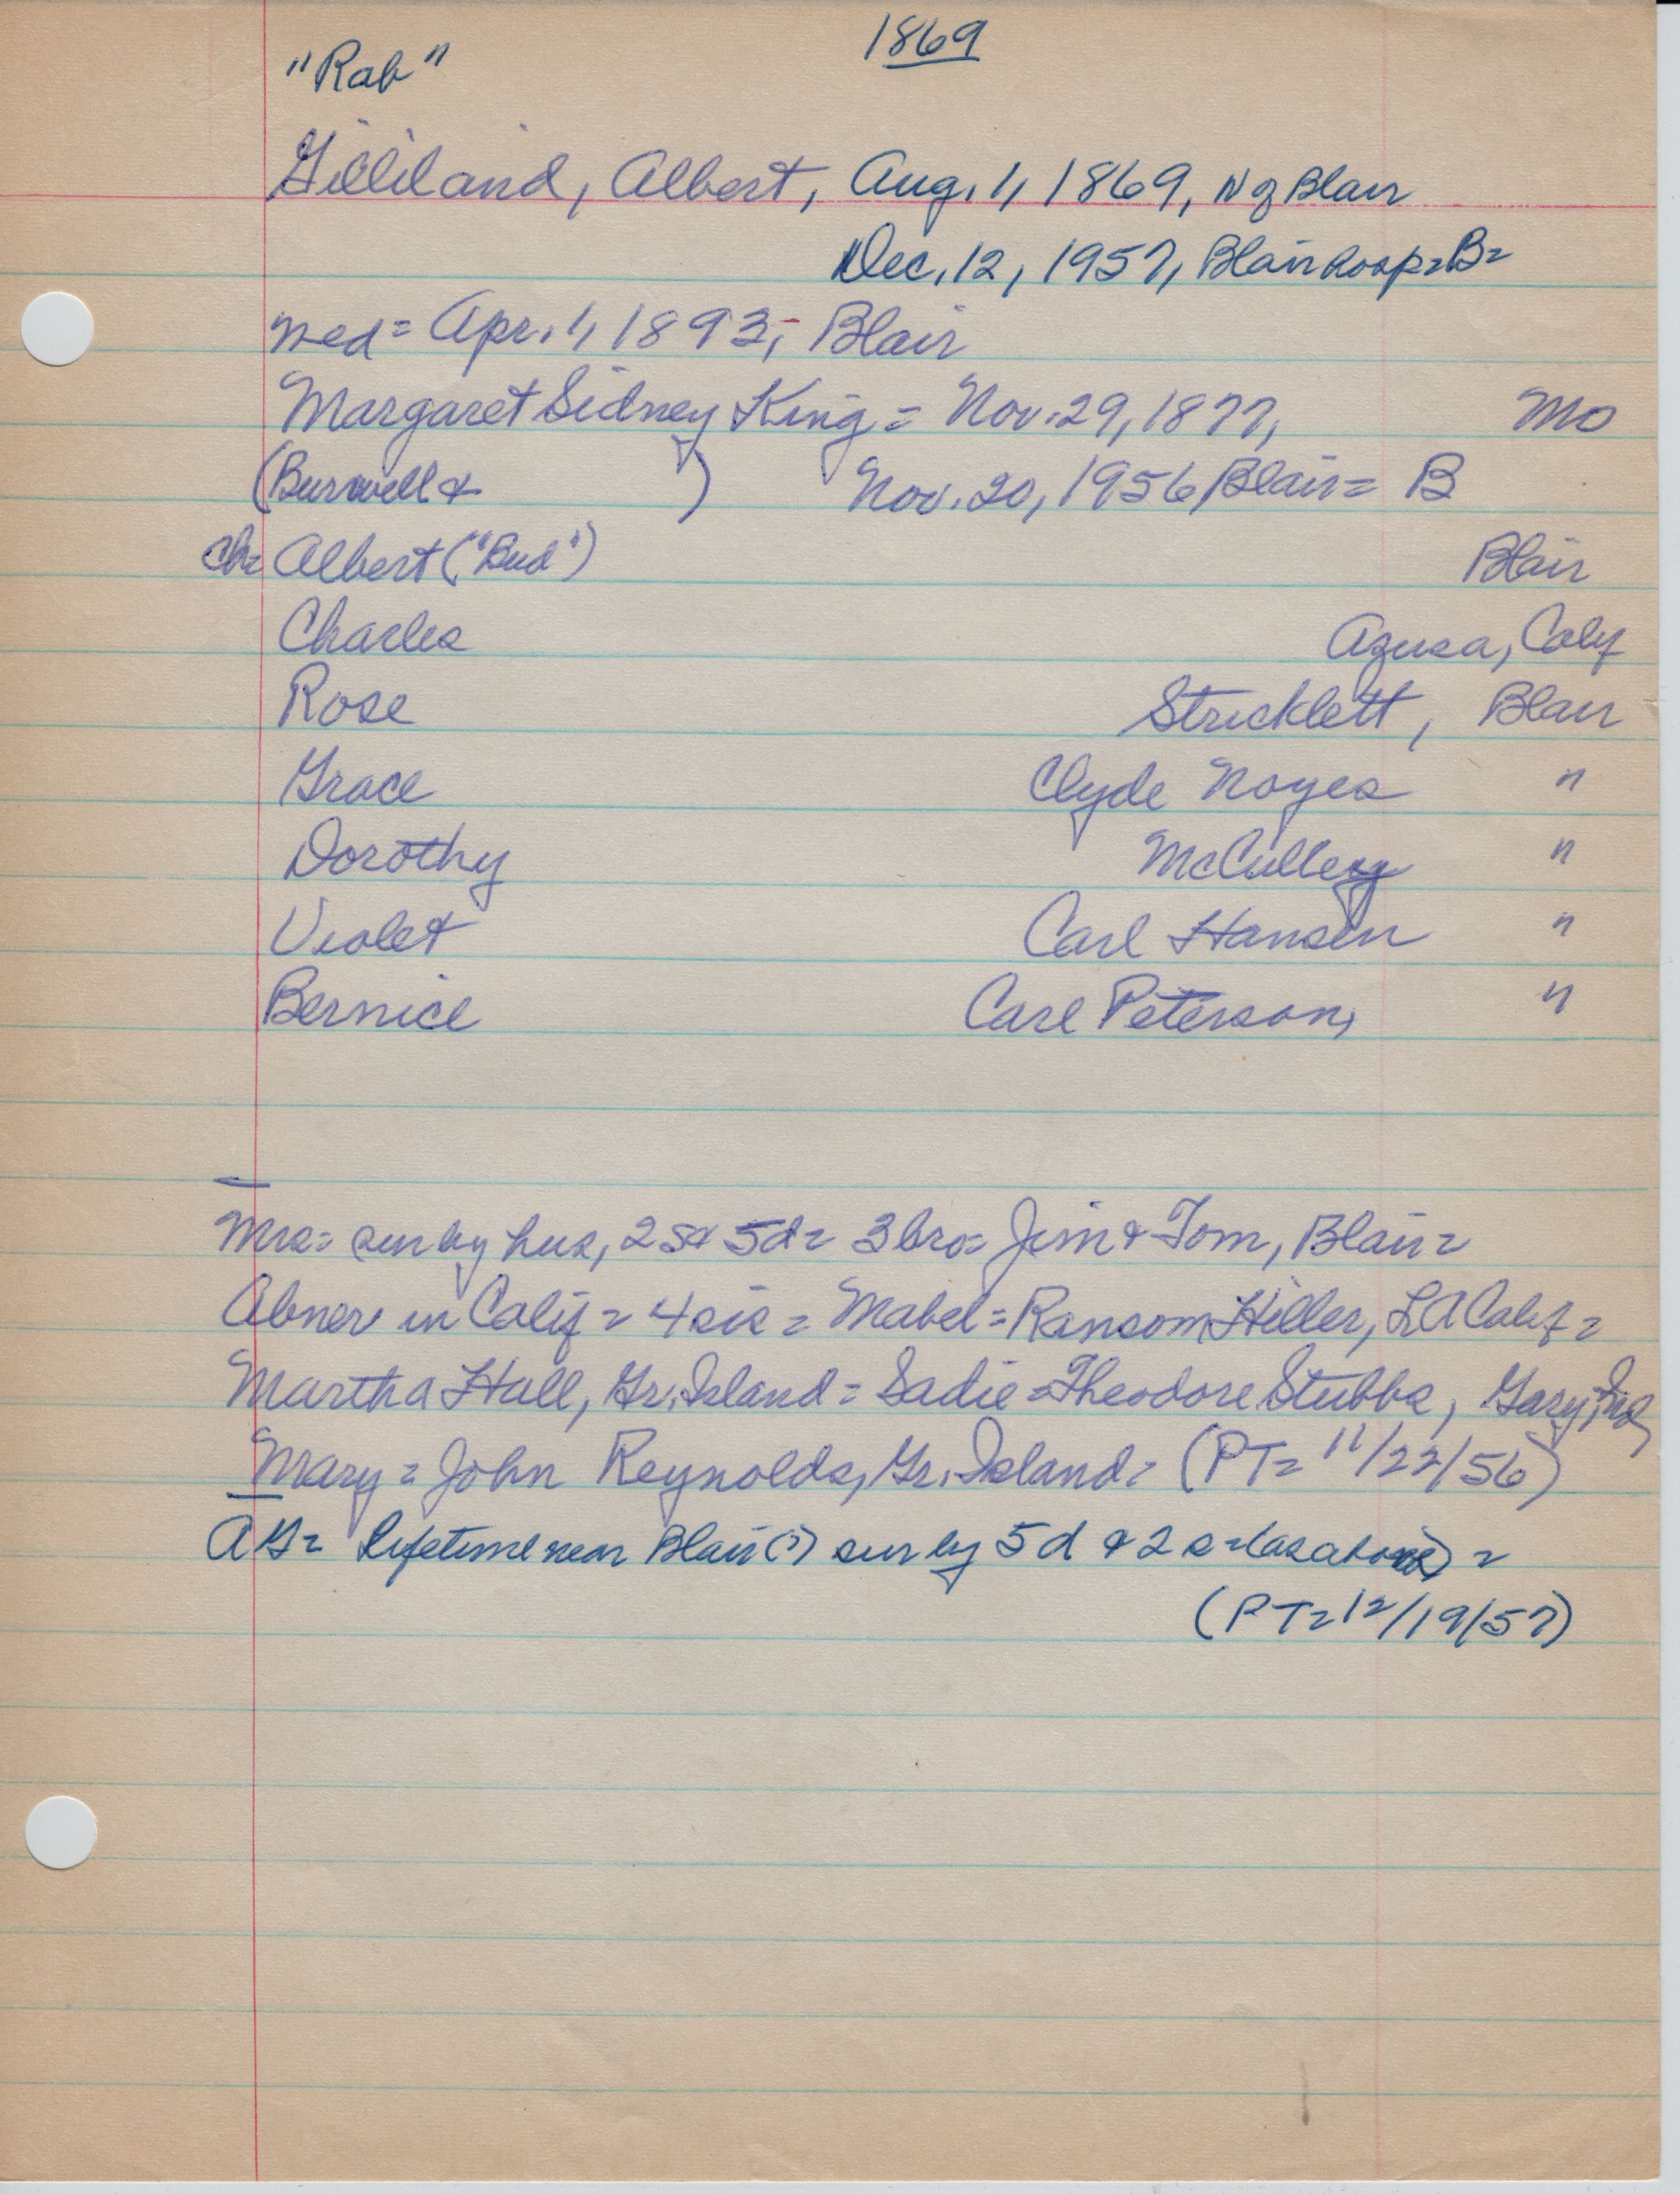 1869
"Rab"
Gilliland, Albert, Aug. 1, 1869, N of Blair
Dec. 12, 1957, Blair hosp = B =
med = Apr. 1, 1893, Blair
Margaret Sidney King = Nov. 29, 1877, Mo
(Burwell & ) Nov. 20, 1956 Blair = B
ch = Albert ("Bud") Blair
Charles Azusa, Calif
Rose Stricklett, Blair
Grace Clyde Noyes "
Dorothy McCullery "
Violet Carl Hansen "
Bernice Carl Peterson, "
Mrs = sur by hus, 2 s & 5 d = 3 bro = Jim & Tom, Blair =
Abner in Calif = 4 sis = Mabel = Ransom Hiller, LA Calif =
Martha Hall, Gr. Island = Sadie = Theodore Stubbs, Gary, Ind,
Mary = John Reynolds, Gr. Island = (PT = 11/22/56)
AG = Lifetime near Blair (?) sur by 5 d & 2 s = (as above) =
(PT = 12/19/57)